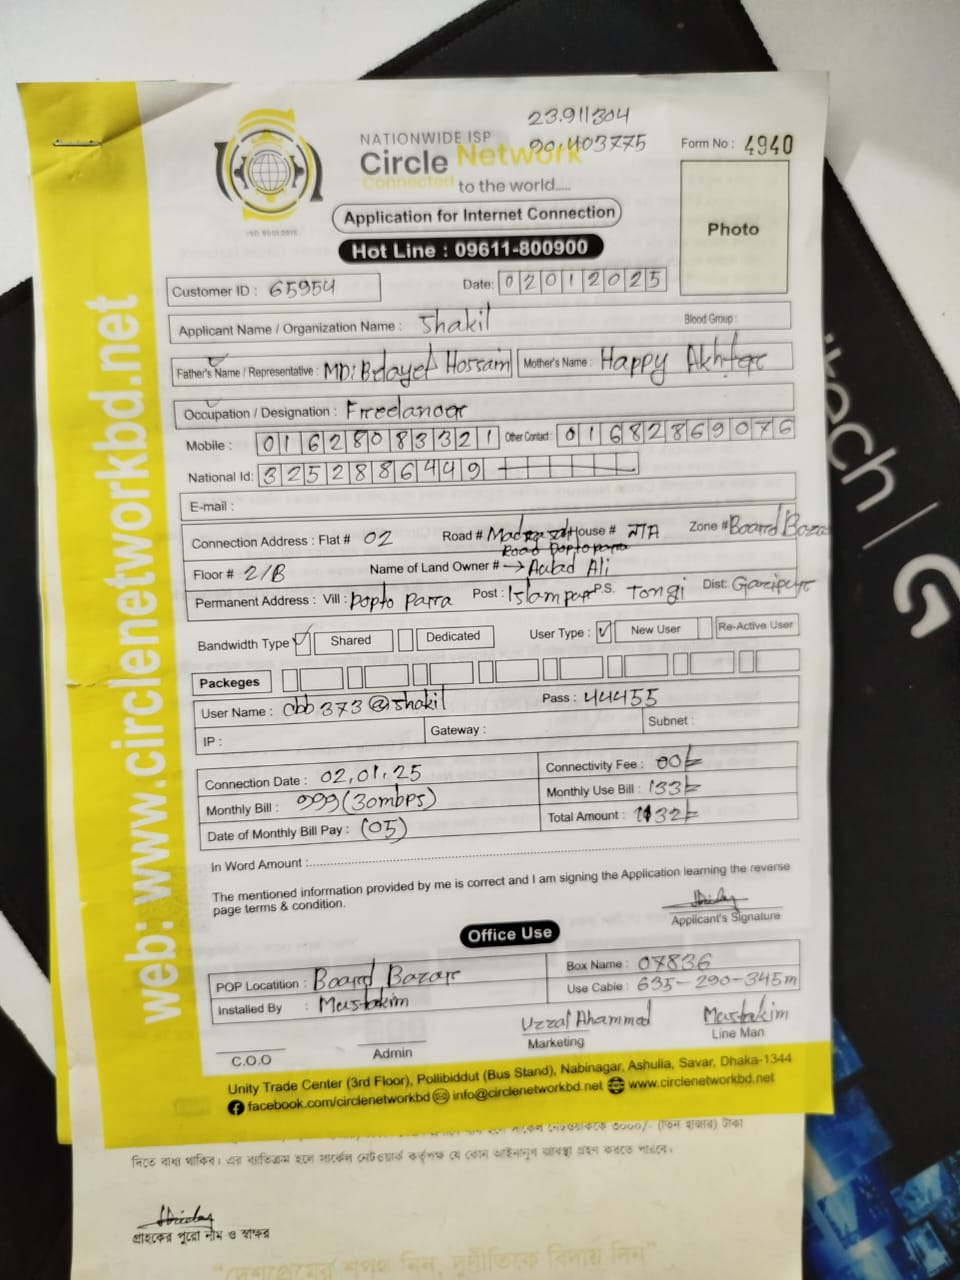 23.911304
90.403775
NATIONWIDE ISP
Circle Network
Connected to the world.....
ISO 9001:2015
Form No : 4940
Photo
Application for Internet Connection
Hot Line : 09611-800900
Customer ID : 65954
Date: 02012025
Applicant Name / Organization Name : Shakil Blood Group :
Father's Name / Representative : MD: Belayet Hossain Mother's Name : Happy Akhter
Occupation / Designation : Freelancer
Mobile : 01628083321 Other Contact : 01682869076
National Id: 3252886449
E-mail :
Connection Address : Flat # 02 Road # Madrasa House # N/A Zone # Board Bazar
Road Poptopara
Floor # 2/B Name of Land Owner # → Aulad Ali
Permanent Address : Vill : Popto Parra Post : Islampur P.S. Tongi Dist: Gazipur
Bandwidth Type Shared Dedicated User Type : New User Re-Active User
Packeges
User Name : cbb373@shakil Pass : 44455
IP : Gateway : Subnet :
Connection Date : 02.01.25 Connectivity Fee : 00/=
Monthly Bill : 999 (30mbps) Monthly Use Bill : 133/=
Date of Monthly Bill Pay : (05) Total Amount : 1132/=
In Word Amount :
The mentioned information provided by me is correct and I am signing the Application learning the reverse
page terms & condition.
Applicant's Signature
Office Use
POP Locatition : Board Bazar Box Name : 07836
Installed By : Mustakim Use Cable : 635-290-345m
Uzzal Ahammed Mustakim
C.O.O Admin Marketing Line Man
Unity Trade Center (3rd Floor), Pollibiddut (Bus Stand), Nabinagar, Ashulia, Savar, Dhaka-1344
facebook.com/circlenetworkbd info@circlenetworkbd.net www.circlenetworkbd.net
web: www.circlenetworkbd.net
৩০০০/- (তিন হাজার) টাকা
দিতে বাধ্য থাকিব। এর ব্যতিক্রম হলে সার্কেল নেটওয়ার্ক কর্তৃপক্ষ যে কোন আইনানুগ ব্যবস্থা গ্রহণ করতে পারবে।
গ্রাহকের পুরো নাম ও স্বাক্ষর
"দেশপ্রেমের শপথ নিন, দুর্নীতিকে বিদায় দিন"
tech | G